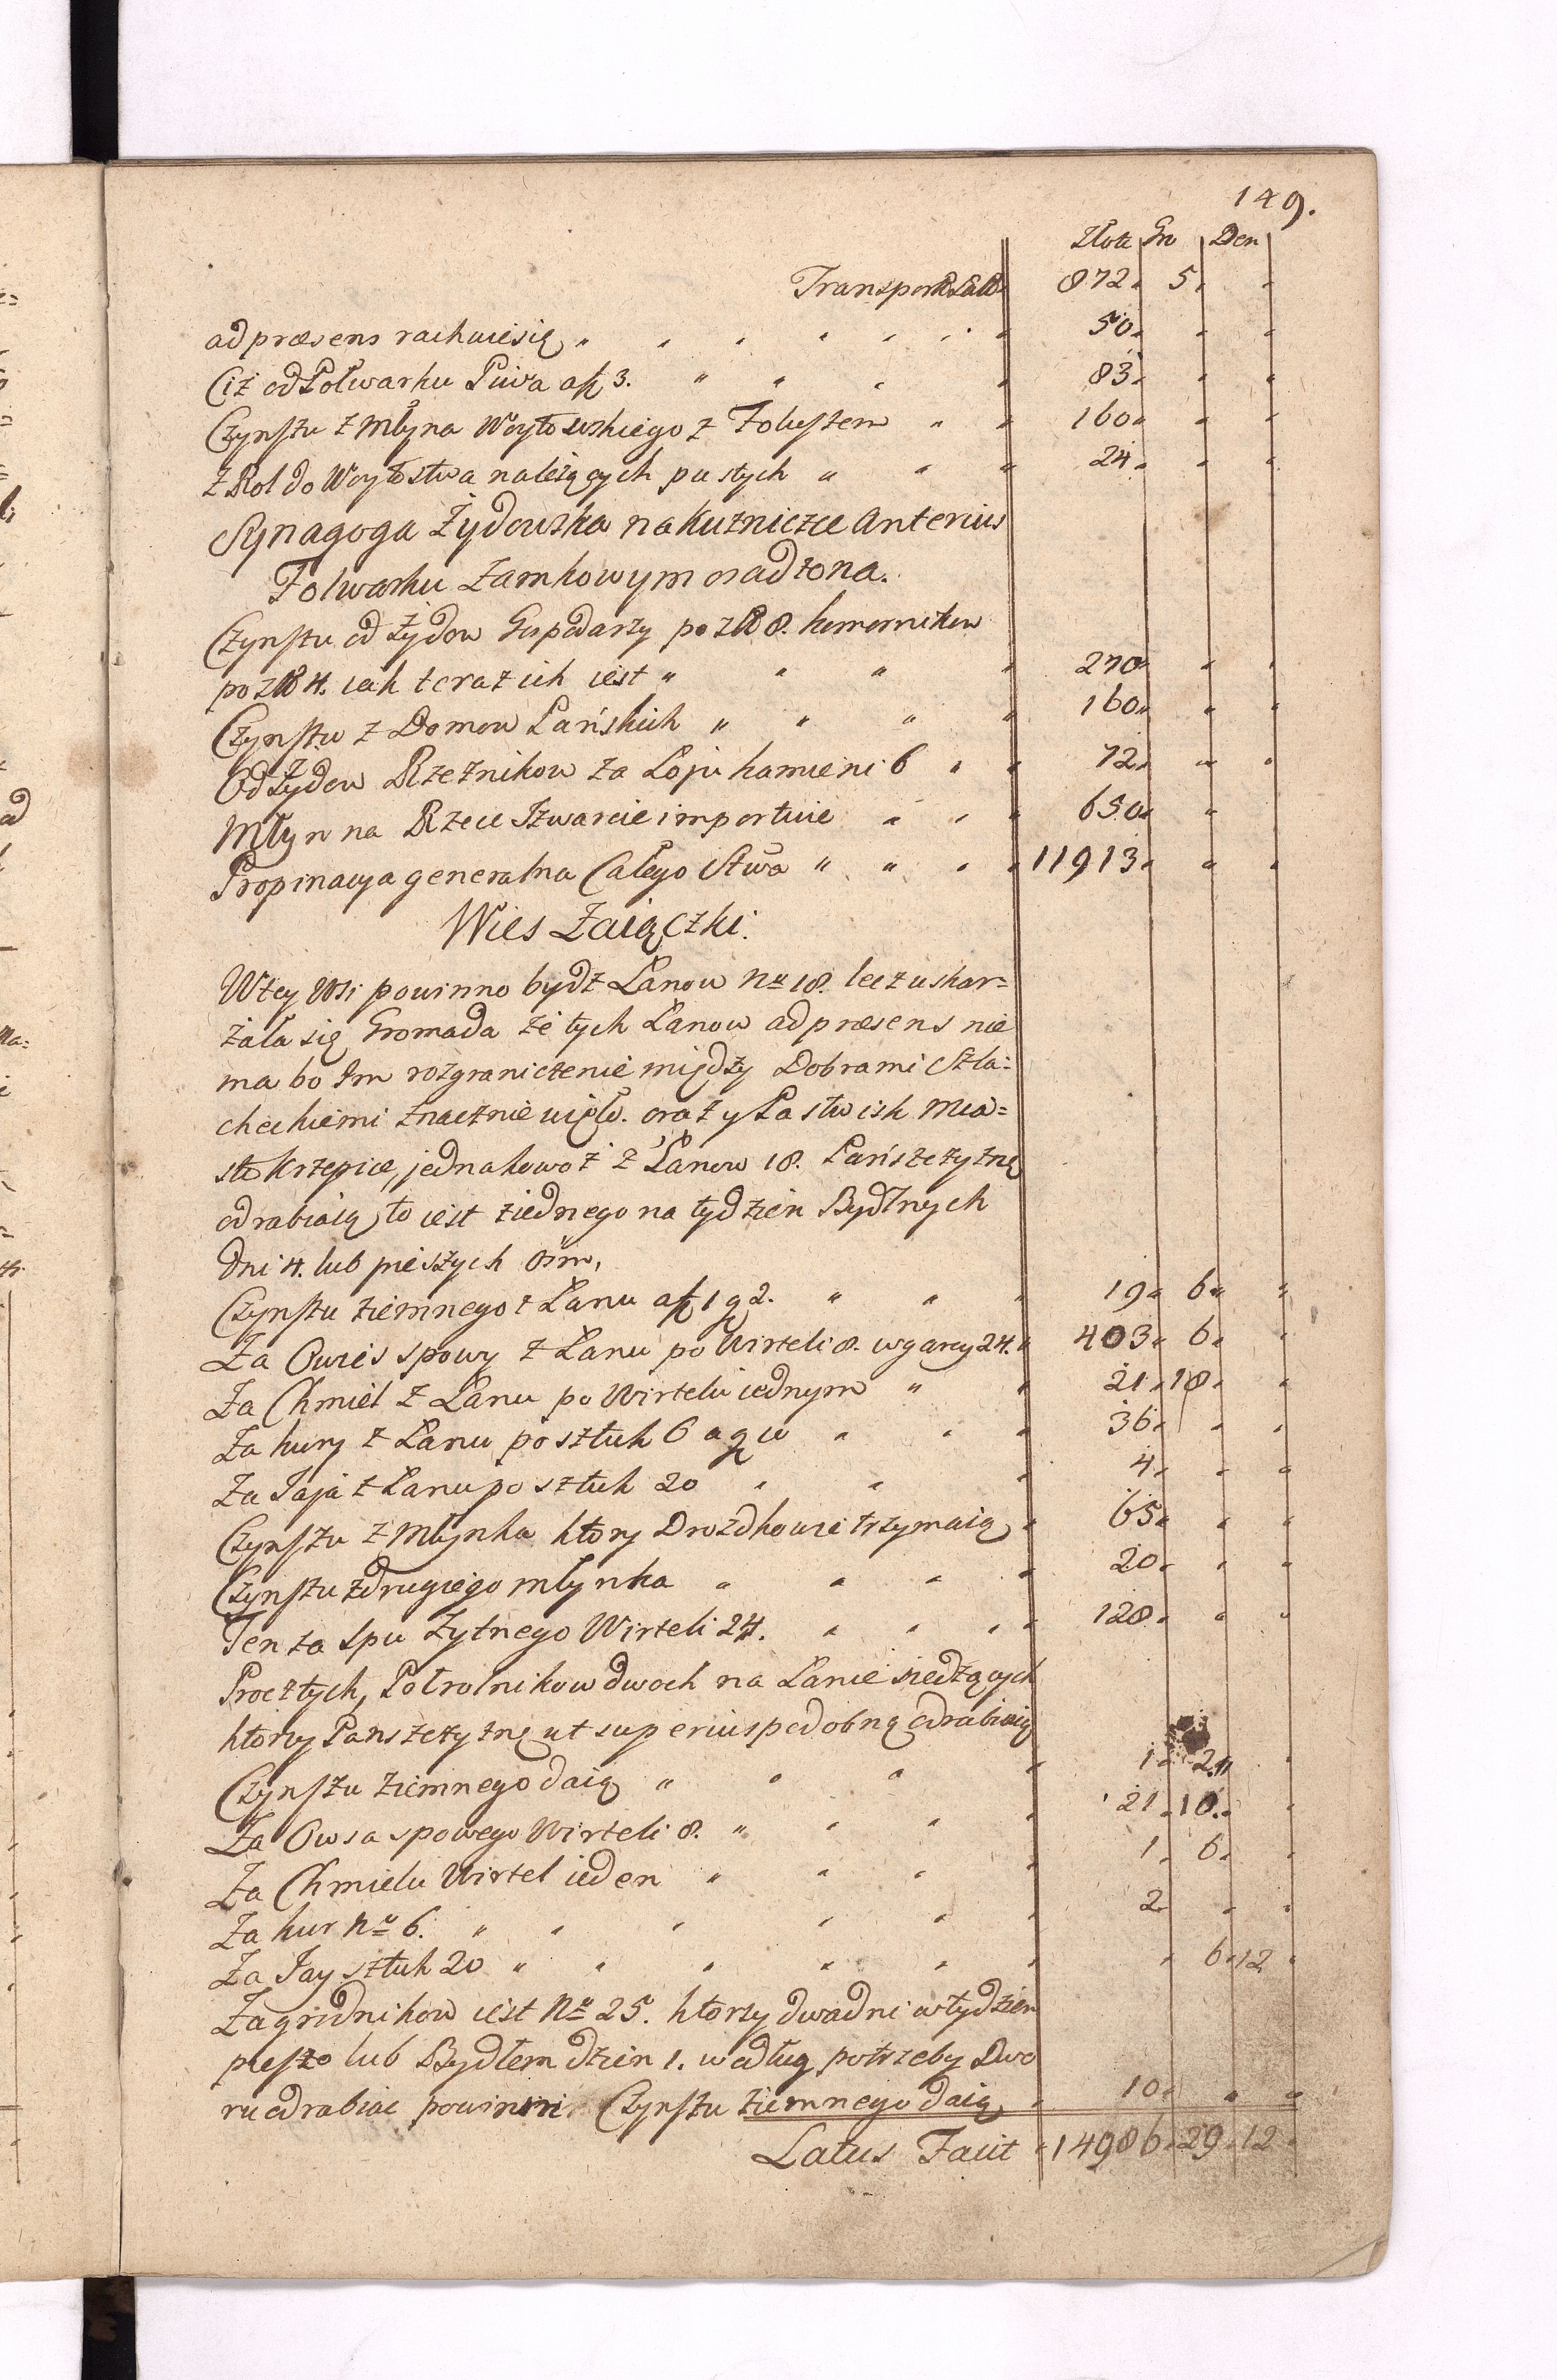 149.
Złote Gr Den
Transport Latus 872 5
ad præsens rachuie się 50
Ciż od Połwarku Piwa a ƒ 3. 83
Czynszu z Młyna Woytowskiego z Foluszem 160
z Rol do Woytostwa należących pustych 24
Synagoga Żydowska na Kuzniczce Anterius
Folwarku Zamkowym osadzona.
Czynszu od Żydow Gospodarzy po zł 8. komornikow
po zł 4. iak teraz ich iest 270
Czynszu z Domow Pańskich 160
Od Żydow Rzeznikow za Łoju kamieni 6 72
Młyn na Rzece Szwarcie importuie 650
Propinacya generalna Całego Stwa 11913
Wies Zaiączki.
W tey Wsi powinno bydz Łanow No 18. lecz uskar=
żała się Gromada że tych Łanow ad præsens nie
ma bo Im rozgraniczenie między Dobrami Szla=
checkiemi znacznie uięło. oraz y Pastwisk Mia=
sto Krzepice, jednakowoż z Łanow 18. Pańszczyznę
odrabiaią to iest z iednego na tydzien Bydlnych
dni 4. lub pieszych ośm,
Czynszu ziemnego z Łanu a ƒ 1 g 2. 19 6
Za Owies spowy z Łanu po Wirteli 8. w garcy 24. 403 6
Za Chmiel z Łanu po Wirtelu iednym 21 18
Za kury z Łanu po sztuk 6 a g 10 36
Za Jaja z Łanu po sztuk 20 4
Czynszu z Młynka ktory Drozdkowie trzymaią 65
Czynszu z drugiego młynka 20
Ten za Spu Zytnego Wirteli 24. 128
Procz tych, Połrolnikow dwoch na Łanie siedzących
ktorzy Panszczyznę ut superius podobną odrabiaią
Czynszu ziemnego daią 1 2
Za Owsa spowego Wirteli 8. 21 10
Za Chmielu Wirtel ieden 1 6
Za kur No 6. 2
Za Jay sztuk 20 6 12
Zagrodnikow iest No 25. ktorzy dwa dni w tydzien
pieszo lub Bydłem dzien 1. według potrzeby Dwo
ru odrabiac powinni Czynszu ziemnego daią 10
Latus Facit 14986 29 12